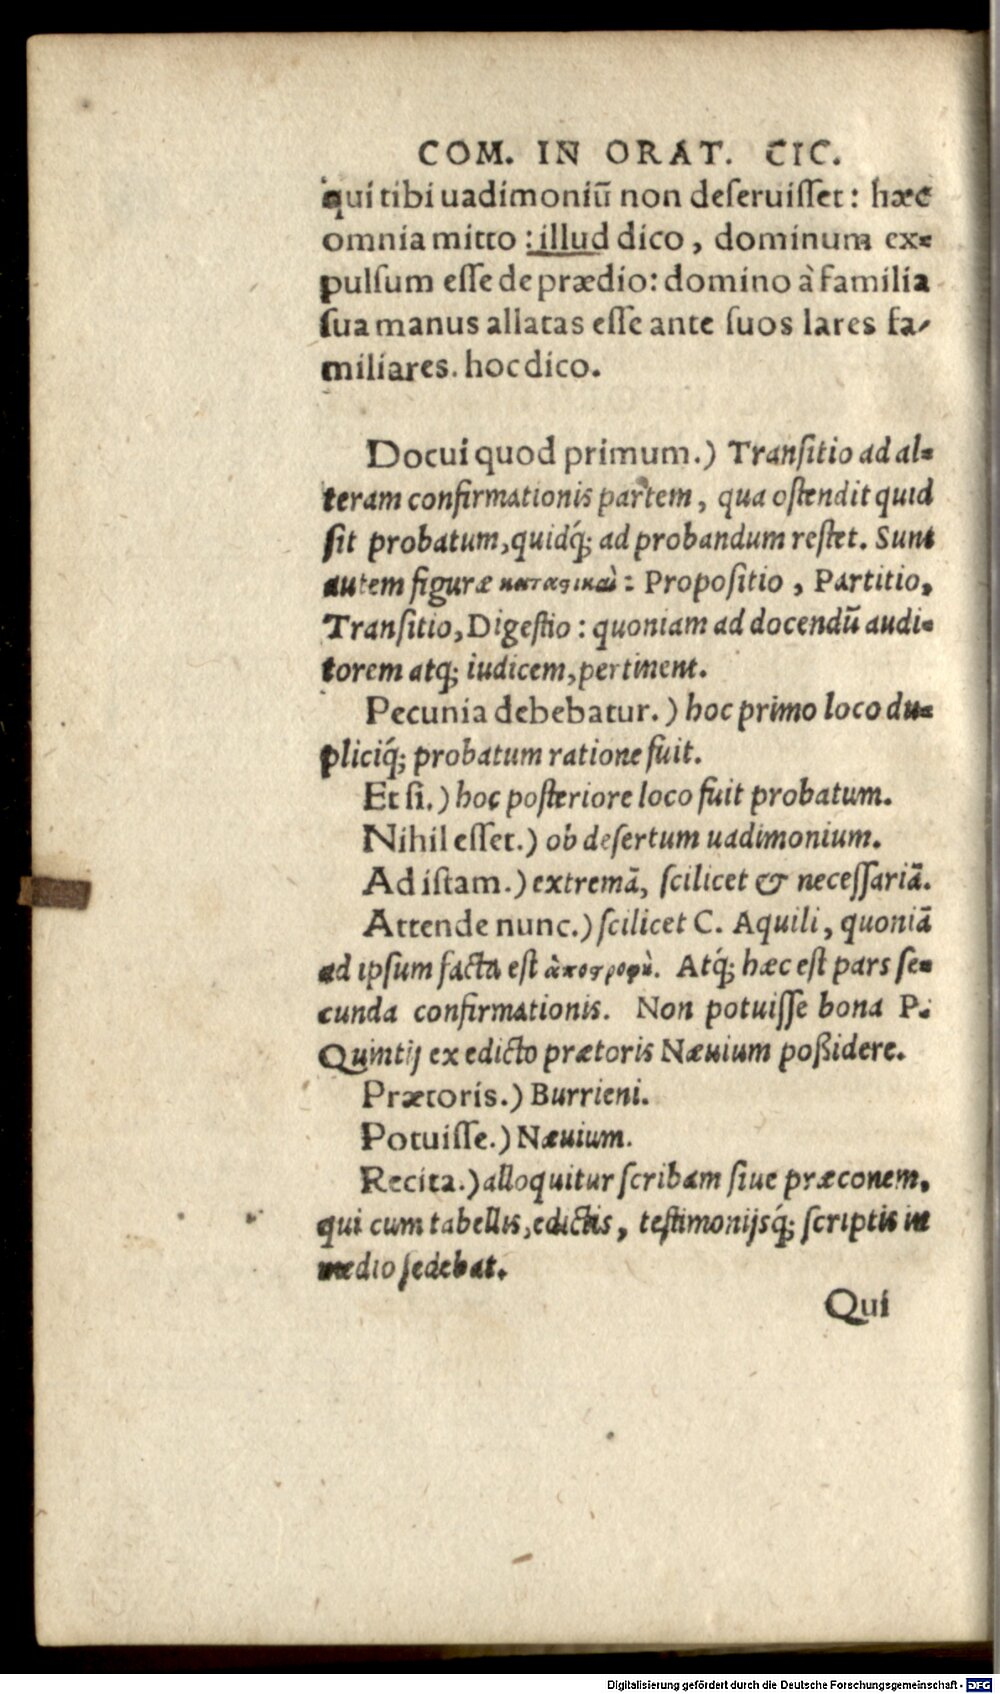 COM. IN ORAT. CIC.
qui tibi uadimoniũ non deseruisset: hæc
omnia mitto: illud dico, dominum ex=
pulsum esse de prædio: domino à familia
sua manus allatas esse ante suos lares fa-
miliares. hoc dico.
Docui quod primum.) Transitio ad al=
teram confirmationis partem, qua ostendit quid
sit probatum, quidq́; ad probandum restet. Sunt
autem figuræ : Propositio, Partitio,
Transitio, Digestio: quoniam ad docendũ audi=
torem atq; iudicem, pertinent.
Pecunia debebatur.) hoc primo loco du=
pliciq́; probatum ratione fuit.
Et si.) hoc posteriore loco fuit probatum.
Nihil esset.) ob desertum uadimonium.
Ad istam.) extremã, scilicet & necessariã.
Attende nunc.) scilicet C. Aquili, quoniã
ad ipsum facta est ἀποστροφὴ. Atq́; hæc est pars se=
cunda confirmationis. Non potuisse bona P.
Quintij ex edicto prætoris Næuium poßidere.
Prætoris.) Burrieni.
Potuisse.) Næuium.
Recita.) alloquitur scribam siue præconem,
qui cum tabellis, edictis, testimonijsq́; scriptis in
medio sedebat.
Qui
Digitalisierung gefördert durch die Deutsche Forschungsgemeinschaft - DFG